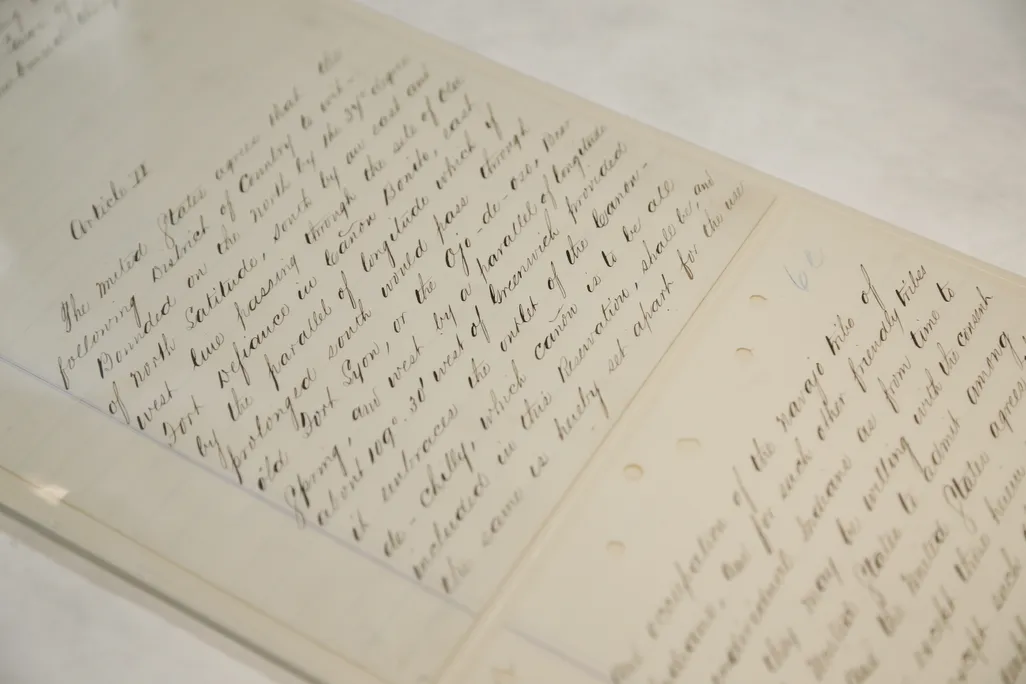 Article II
The United States agrees that the
following District of Country to wit:
Bounded on the North by the 37th degree
of North Latitude, South by an east and
west line passing through the site of Old
Fort Defiance in Cañon Bonito, east
by the parallel of longitude which if
prolonged south would pass through
old Fort Lyon, or the Ojo-de-oso, Bear
Spring, and west by a parallel of longitude
about 109°.30' west of Greenwich provided
it embraces the outlet of the Canon-
de-Chilly, which cañon is to be all
included in this Reservation, shall be, and
the same is hereby set apart for the use
6
occupation of the Navajo tribe of
and for such other friendly tribes
Indians as from time to
they may be willing with the consent
United States to admit among
and the United States agrees